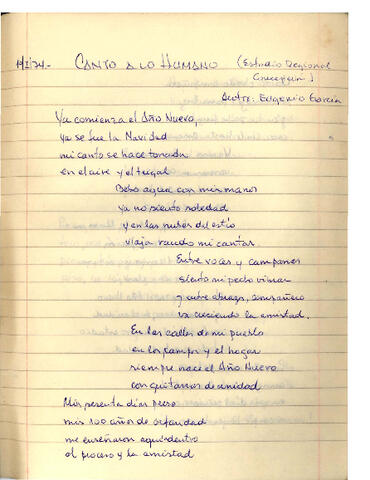 11/I/74.- CANTO A LO HUMANO (Estudio Regional
Concepción)
Autor: Eugenio García
Ya comienza el Año Nuevo,
ya se fue la Navidad
mi canto se hace tonada
en el aire y el trigal
Bebo agua con mis manos
ya no siento soledad
y en las nubes del estío
viaja raudo mi cantar.
Entre voces y campanas
siento mi pecho vibrar
y entre abrazo, compañero
va creciendo la amistad.
En las calles de mi pueblo
en los campos y el hogar
siempre nace el Año Nuevo
con guitarras de unidad
Mis días preso
mis 100 años de orfandad
me enseñaron aquí dentro
el proceso y la amistad